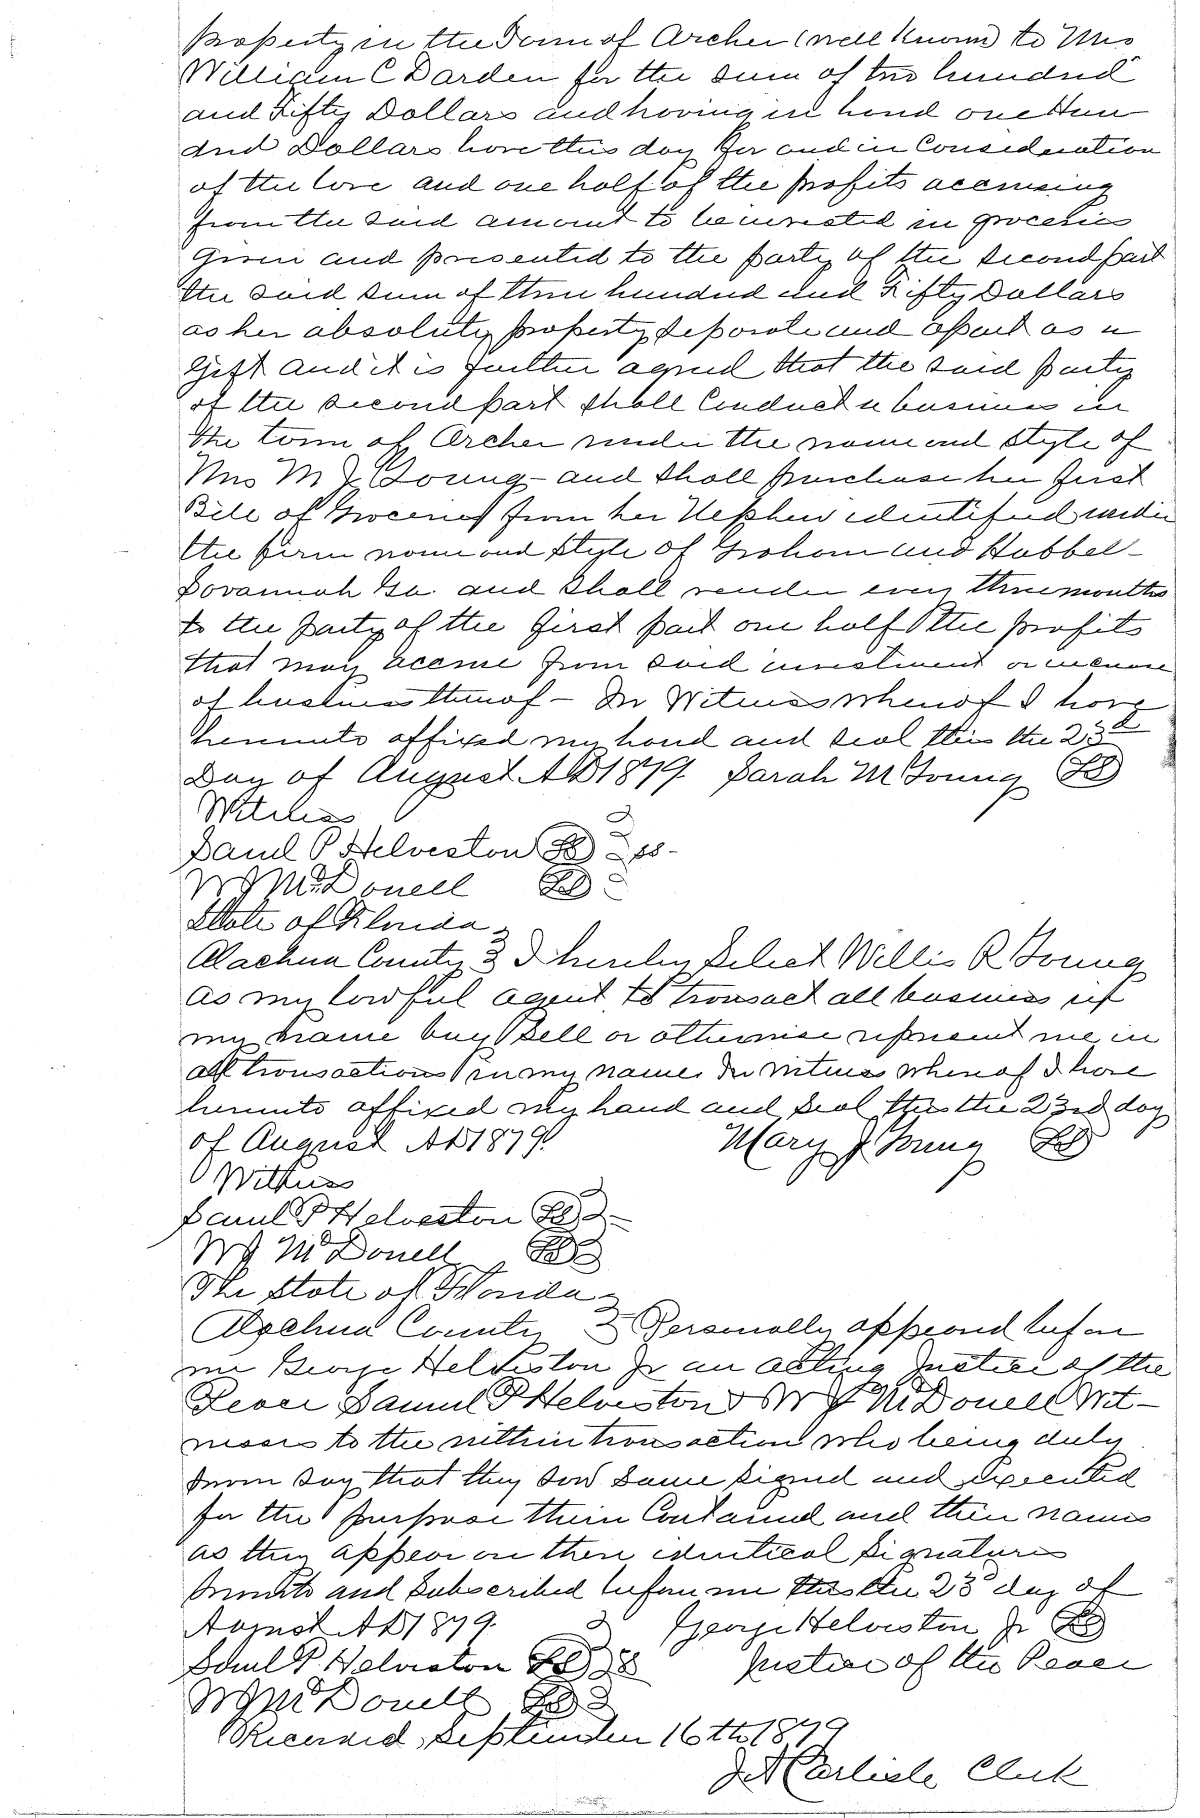 property in the Town of Archer (well known) to Mrs
William C Darden for the sum of two hundred
and Fifty Dollars and having in hand one Hun
dred Dollars have this day for and in Consideration
of the love and one half of the profits accruing
from the said amount to be invested in groceries
Given and presented to the party of the second part
the said sum of three hundred and Fifty Dollars
as her absolute property, separate and apart as a
Gift and it is further agreed that the said party
of the second part shall Conduct a business in
the town of Archer under the name and style of
Mrs M J Young - and shall purchase her first
Bill of Groceries from her Nephew identified under
the firm name and style of Graham and Hubbel -
Savannah Ga. and shall render every three months
to the party of the first part one half the profits
that may accrue from said investment or increase
of business thereof - In Witness whereof I have
hereunto affixed my hand and seal this the 23d
Day of August AD 1879. Sarah M Young LS
Witness
Saml P Helveston LS ss -
W J McDonell LS
State of Florida
Alachua County I hereby Select Willis R Young
as my lawful agent to transact all business in
my name buy sell or otherwise represent me in
all transactions in my name. In witness whereof I have
hereunto affixed my hand and seal this the 23rd day
of August AD 1879. Mary J Young LS
Witness
Saml P Helveston LS
W J McDonell LS
The State of Florida
Alachua County Personally appeared before
me George Helveston Jr an acting Justice of the
Peace Samuel P Helveston & W J McDonell Wit-
nesses to the within transaction who being duly
sworn say that they saw same signed and executed
for the purpose therein Contained and their names
as they appear on there identical Signatures
Sworn to and Subscribed before me this the 23d day of
August AD 1879. George Helveston Jr LS
Saml P. Helveston LS Justice of the Peace
W J McDonell LS
Received, September 16th 1879
J A Carlisle Clerk